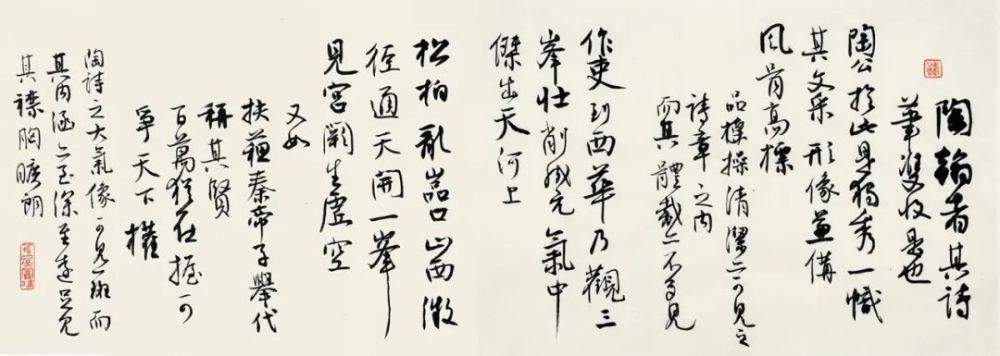 陶翰者其詩
筆雙收是也
陶公於此是獨秀一幟
其文采形像兼備
風骨高標
品標操清潔亦可見之
詩章之内
而其體裁亦不多見
作吏到西華乃觀三
峯壯削成元氣中
傑出天河上
松柏亂巖口山西微
徑通天開一峯
見宮闕生虛空
又如
扶蘇秦帝子舉代
稱其賢
百萬猶在握可
爭天下權
陶詩之大氣像可見一斑而
其内涵亦至深至遠足見
其襟胸曠朗